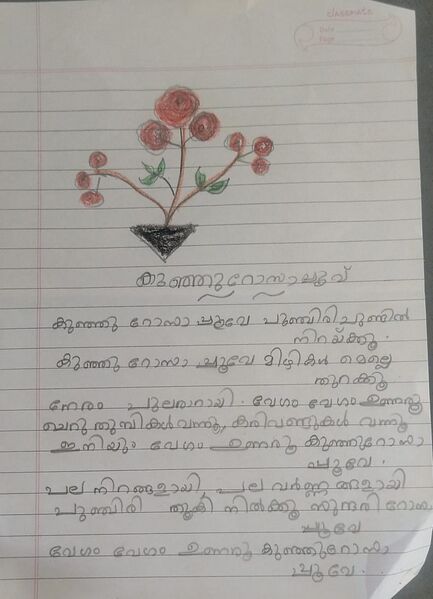 classmate
Date
Page
കുഞ്ഞുറോസാപൂവ്
കുഞ്ഞു റോസാ പൂവേ പുഞ്ചിരി ചുണ്ടിൽ
നിറയ്ക്കൂ.
കുഞ്ഞു റോസാ പൂവേ മിഴികൾ മെല്ലെ
തുറക്കൂ.
നേരം പുലരാറായി. വേഗം വേഗം ഉണരൂ
ചെറുതുമ്പികൾ വന്നൂ, കരിവണ്ടുകൾ വന്നൂ
ഇനിയും വേഗം ഉണരൂ കുഞ്ഞുറോസാ
പൂവേ.
പല നിറങ്ങളായി, പല വർണ്ണങ്ങളായി
പുഞ്ചിരി തൂകി നിൽക്കൂ സുന്ദരി റോസാ
പൂവേ
വേഗം വേഗം ഉണരൂ കുഞ്ഞുറോസാ
പൂവേ.